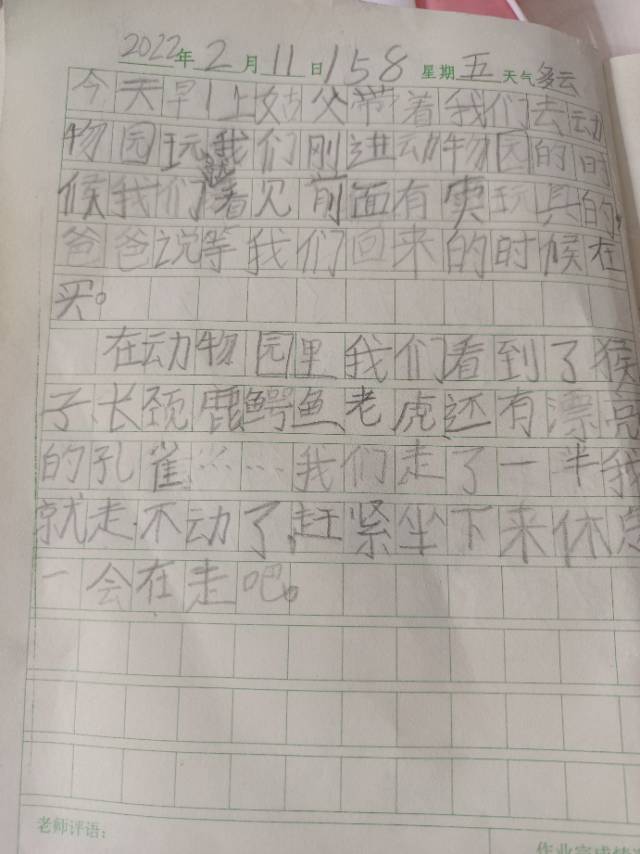 2022年2月11日158 星期五 天气多云
今天早上姑父带着我们去动
物园玩我们刚进动物园的时
候我们看见前面有卖玩具的,
爸爸说等我们回来的时候在
买。
在动物园里我们看到了猴
子、长颈鹿鳄鱼老虎还有漂亮
的孔雀……我们走了一半我
就走不动了,赶紧坐下来休息
一会在走吧。
老师评语: